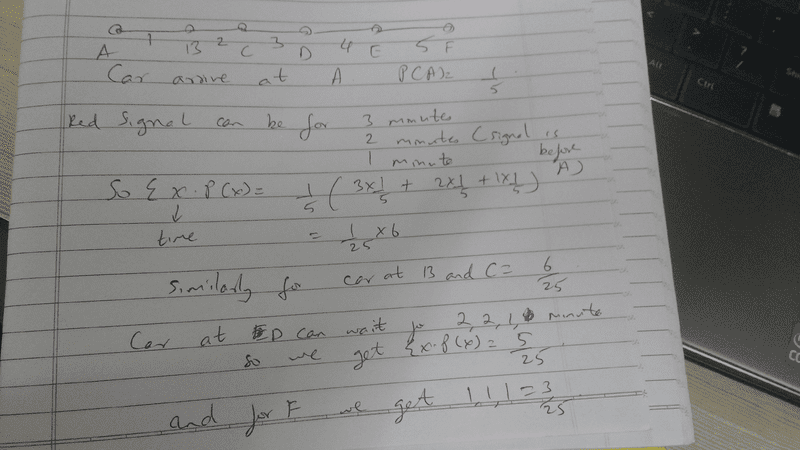 1 2 3 4 5
A B C D E F
Car arrive at A P(A) = 1/5
Red Signal can be for 3 minutes
2 minutes (signal is before A)
1 minute
So Σ x · P(x) = 1/5 ( 3x1/5 + 2x1/5 + 1x1/5 )
↓
time = 1/25 x 6
Similarly for car at B and C = 6/25
Car at D can wait for 2, 2, 1, minute
so we get Σx·P(x) = 5/25
and for F we get 1, 1, 1 = 3/25
Alt
Ctrl
?
/